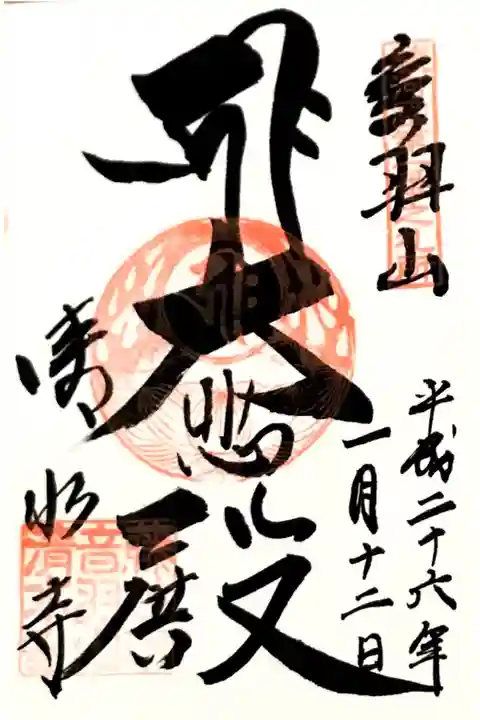 音羽山
平成二十六年
一月十二日
大悲殿
清水寺